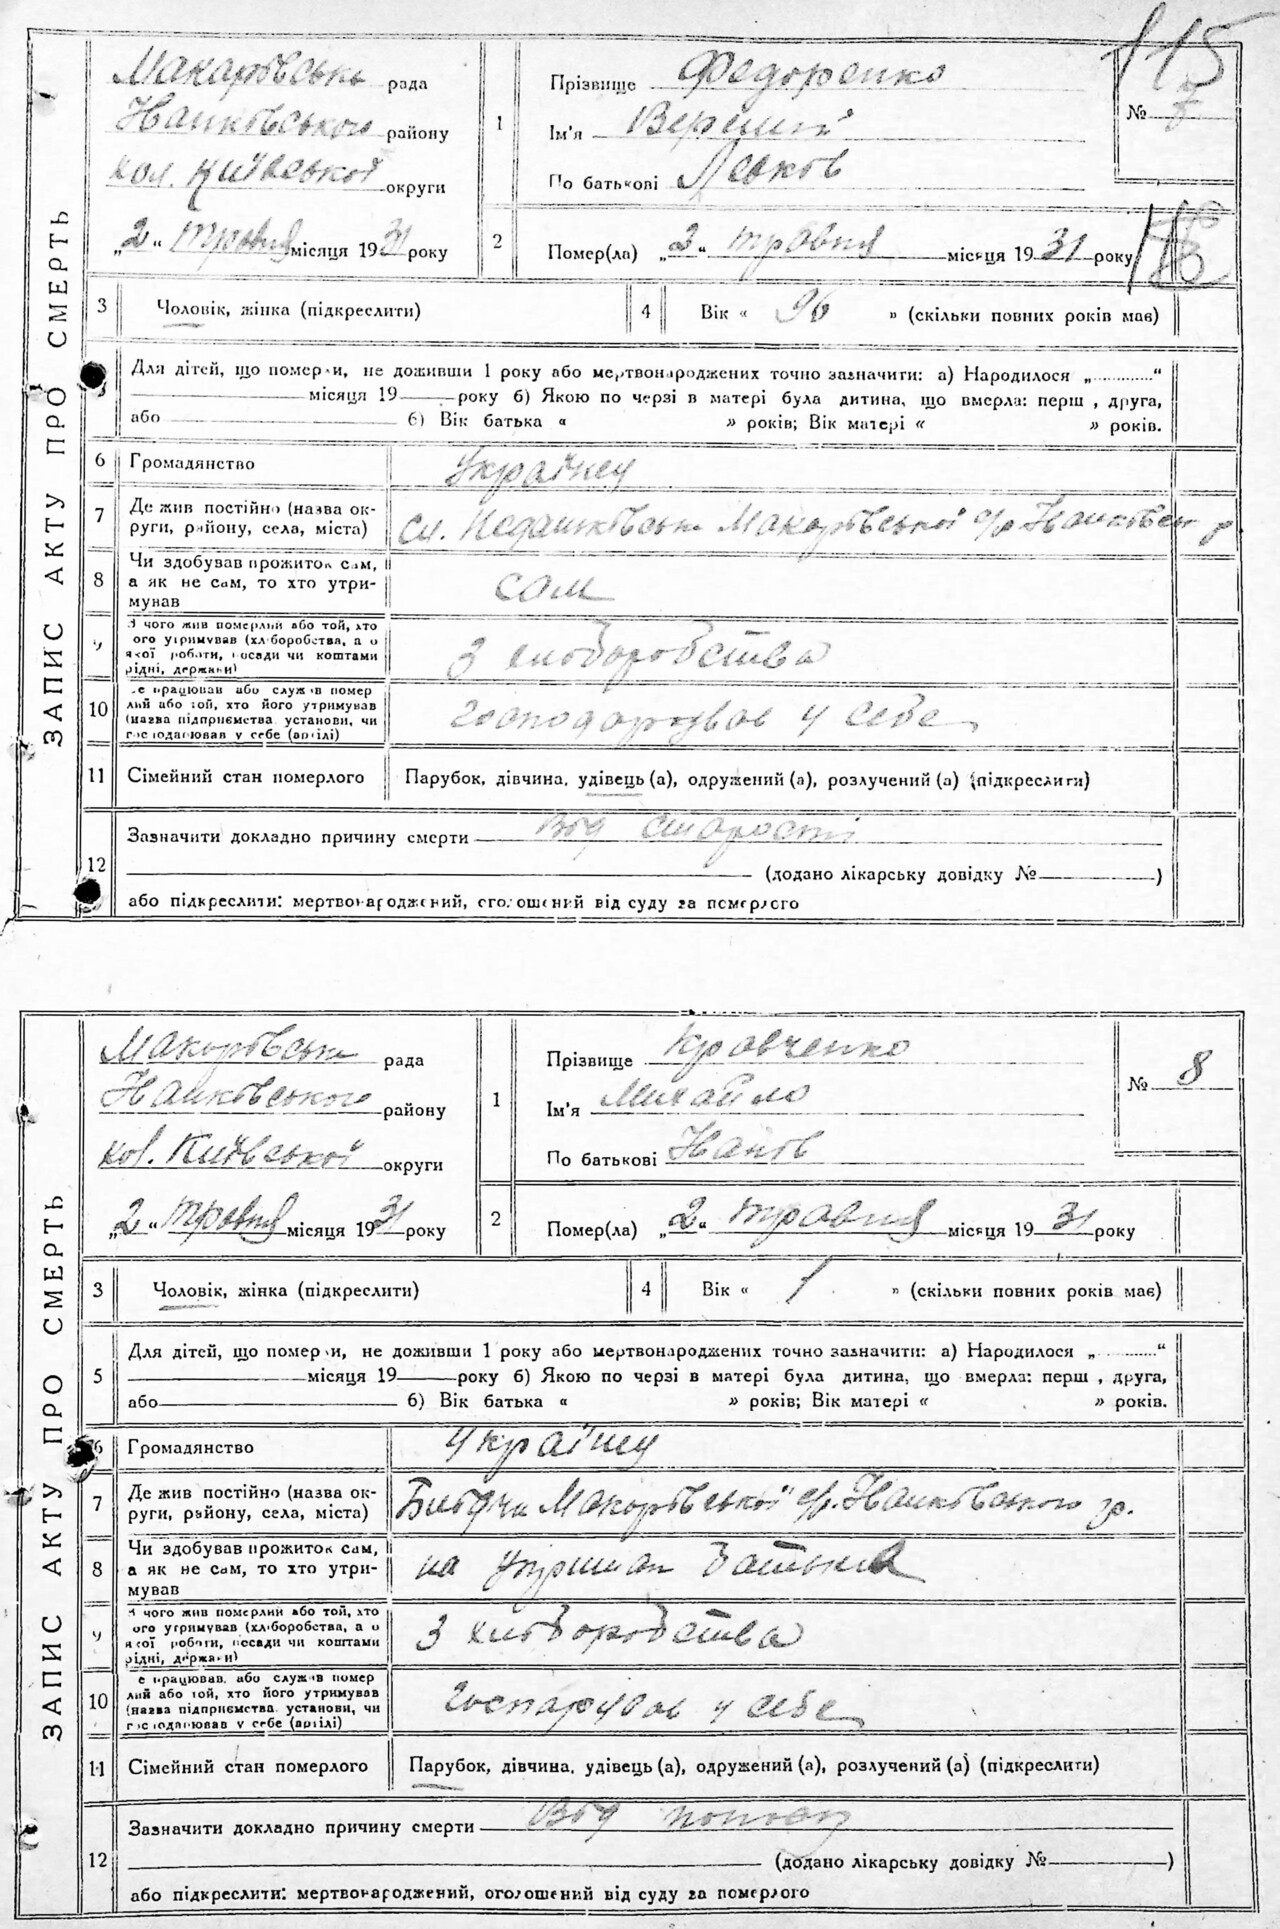 115
ЗАПИС АКТУ ПРО СМЕРТЬ
Макарівська рада
району
кол. Київської округи
„2“ травня місяця 1931 року
1
Прізвище Федоренко
Ім'я
По батькові Левков
№ 7
2
Помер(ла) „2“ травня місяця 1931 року
3 Чоловік, жінка (підкреслити)
4 Вік « 96 » (скільки повних років має)
Для дітей, що померли, не доживши 1 року або мертвонароджених точно зазначити: а) Народилося „............“
місяця 19 року б) Якою по черзі в матері була дитина, що вмерла: перш , друга,
або б) Вік батька « » років; Вік матері « » років.
6 Громадянство Українец
7 Де жив постійно (назва ок-
руги, району, села, міста)
Макарівської с/р
8 Чи здобував прожиток сам,
а як не сам, то хто утри-
мував
сам
9 З чого жив померлий або той, хто
ого утримував (хліборобства, а о
якої роботи, посади чи коштами
рідні, держави)
З хліборобства
10 е працював або служив помер
лий або той, хто його утримував
(назва підприємства установи, чи
господарював у себе (артілі)
господарував у себе
11 Сімейний стан померлого Парубок, дівчина, удівець (а), одружений (а), розлучений (а) (підкреслити)
12 Зазначити докладно причину смерти Від старости
(додано лікарську довідку № )
або підкреслити: мертвонароджений, оголошений від суду за померлого
ЗАПИС АКТУ ПРО СМЕРТЬ
Макарівська рада
району
кол. Київської округи
„2“ травня місяця 1931 року
1
Прізвище Кравченко
Ім'я Михайло
По батькові Іванів
№ 8
2
Помер(ла) „2“ травня місяця 1931 року
3 Чоловік, жінка (підкреслити)
4 Вік « 1 » (скільки повних років має)
5 Для дітей, що померли, не доживши 1 року або мертвонароджених точно зазначити: а) Народилося „............“
місяця 19 року б) Якою по черзі в матері була дитина, що вмерла: перш , друга,
або б) Вік батька « » років; Вік матері « » років.
6 Громадянство Українец
7 Де жив постійно (назва ок-
руги, району, села, міста)
Макарівської с/р.
8 Чи здобував прожиток сам,
а як не сам, то хто утри-
мував
на батька
9 З чого жив померлий або той, хто
ого утримував (хліборобства, а о
якої роботи, посади чи коштами
рідні, держави)
З хліборобства
10 е працював або служив помер
лий або той, хто його утримував
(назва підприємства установи, чи
господарював у себе (артілі)
госпарував у себе
11 Сімейний стан померлого Парубок, дівчина, удівець (а), одружений (а), розлучений (а) (підкреслити)
12 Зазначити докладно причину смерти Від
(додано лікарську довідку № )
або підкреслити: мертвонароджений, оголошений від суду за померлого